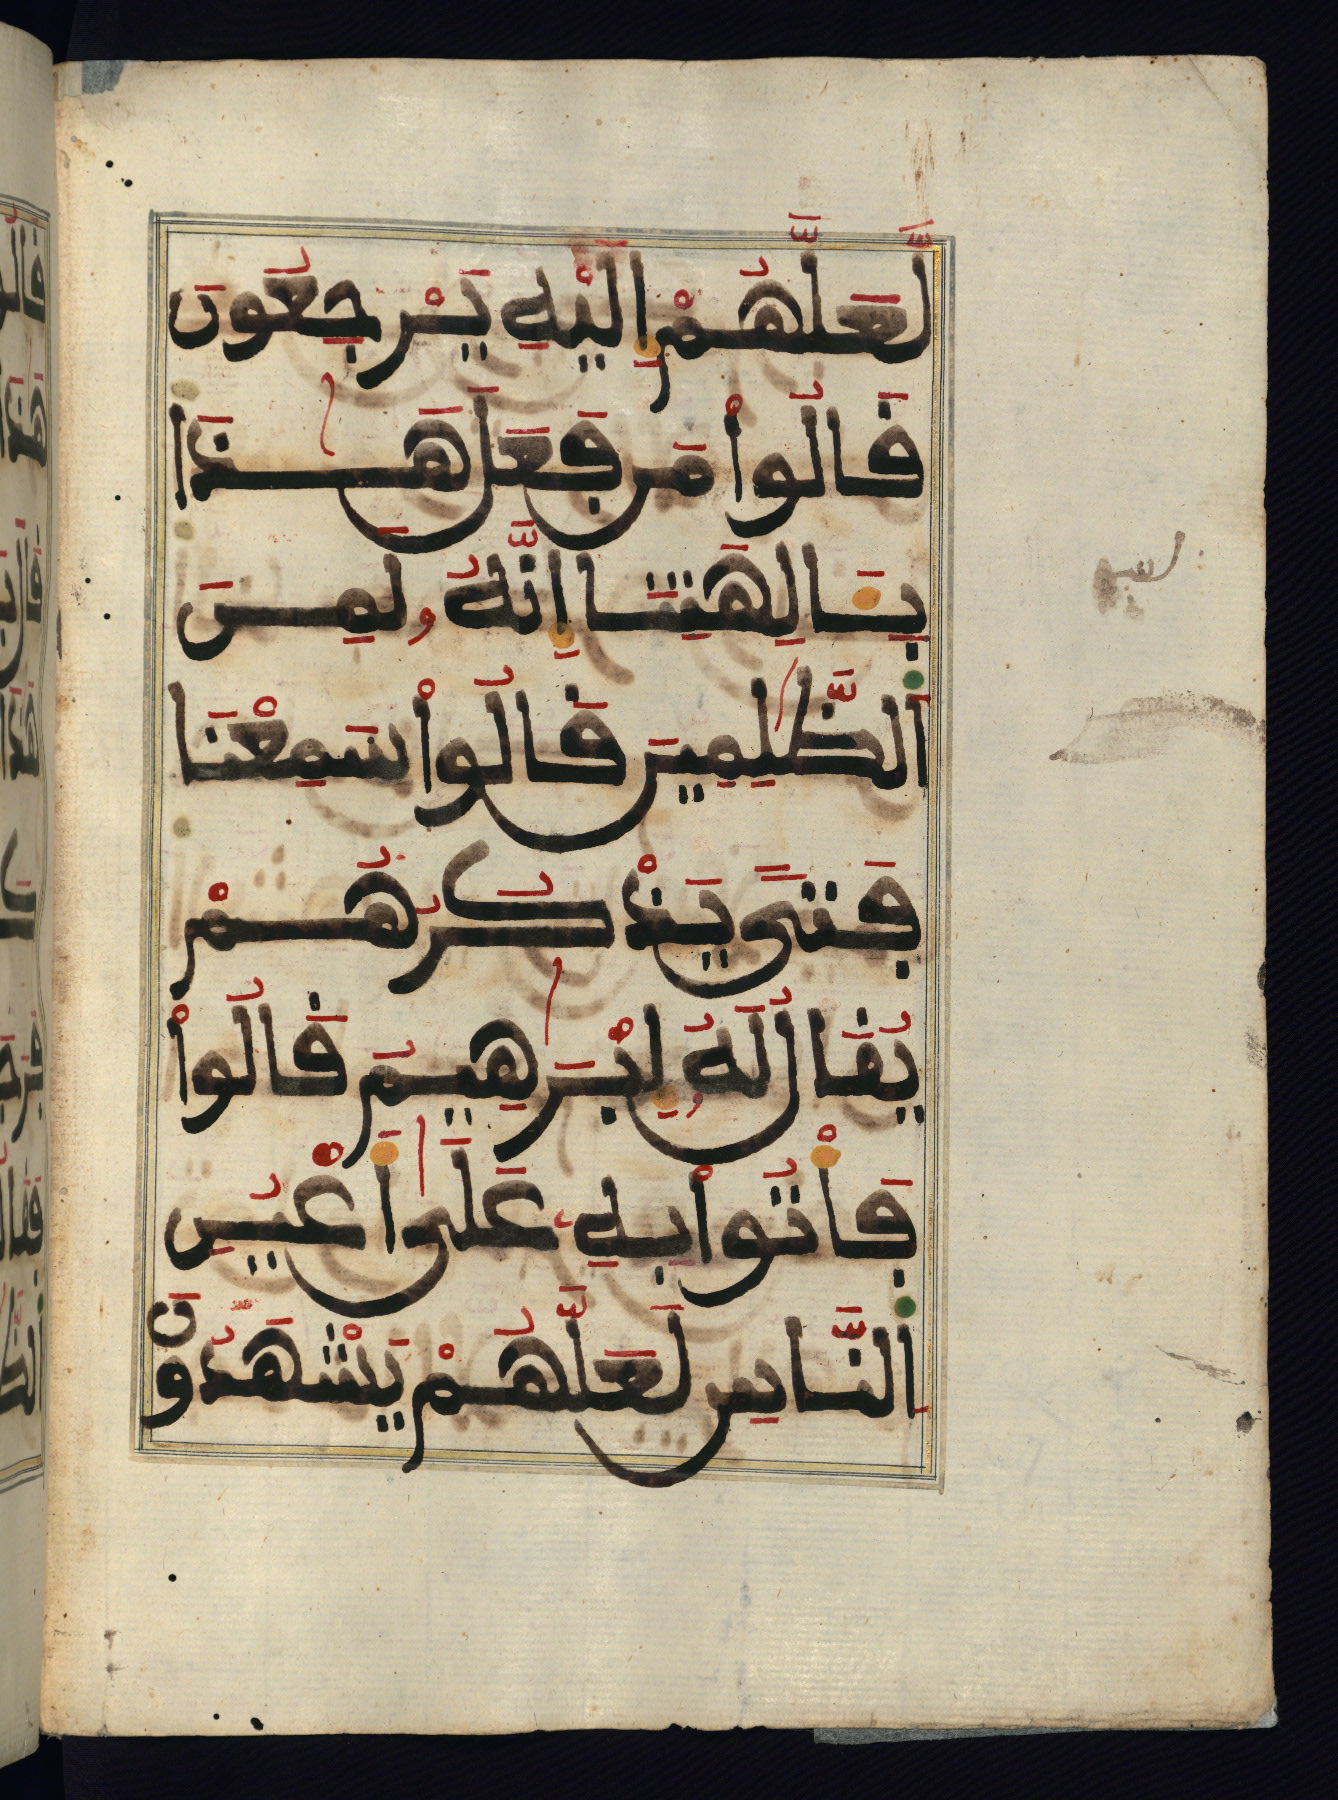 لَعَلَّهُمْ إِلَيْهِ يَرْجِعُونَ
قَالُواْ مَن فَعَلَ هَـٰذَا
بِـَٔالِهَتِنَا إِنَّهُۥ لَمِنَ
ٱلظَّـٰلِمِينَ قَالُواْ سَمِعْنَا
فَتًى يَذْكُرُهُمْ
يُقَالُ لَهُۥ إِبْرَٰهِيمُ قَالُواْ
فَأْتُواْ بِهِۦ عَلَىٰ أَعْيُنِ
ٱلنَّاسِ لَعَلَّهُمْ يَشْهَدُونَ